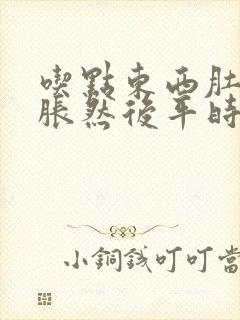 喫點東西肚
脹然後平時
小銅錢叮叮當